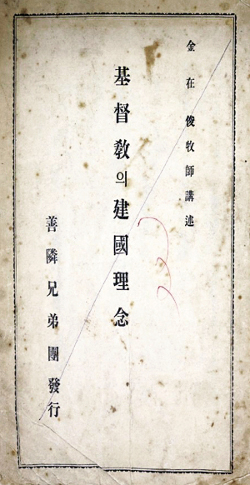 金在俊牧師講述
基督敎의建國理念
善隣兄弟團發行